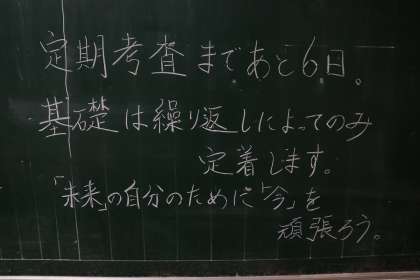 定期考査まであと6日。
基礎は繰り返しによってのみ
定着します。
「未来」の自分のために「今」を
頑張ろう。